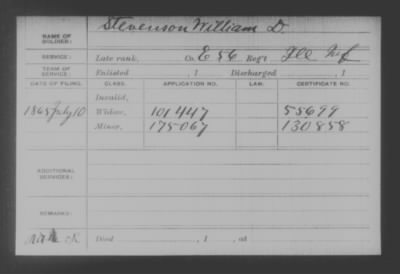 NAME OF SOLDIER: Stevenson William D.
SERVICE: Late rank, Co. E 56 Reg't Ill Inf
TERM OF SERVICE: Enlisted , 1 Discharged , 1
DATE OF FILING. CLASS. APPLICATION NO. LAW. CERTIFICATE NO.
Invalid,
1865 July 10 Widow, 101447 55699
Minor, 175067 130858
ADDITIONAL SERVICES:
REMARKS:
Died , 1 , at